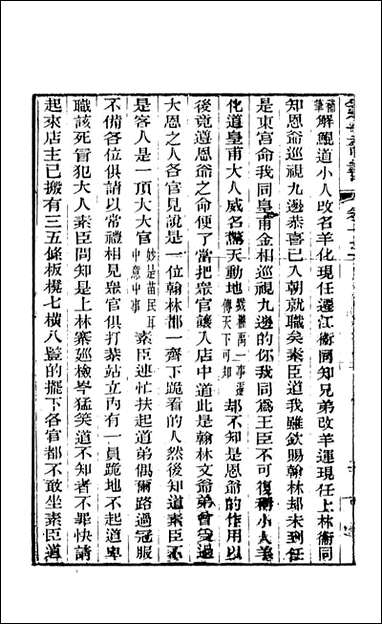 解鯤道小人改名羊化現任遷江衞同知兄弟改羊運現任上林衞同
知恩爺巡視九邊恭喜已入朝就職矣素臣道我雖欽賜翰林却未到任
是東宮命我同皇甫金相巡視九邊的你我同爲王臣不可復稱小人羊
化道皇甫大人威名驚天動地 傳天下可知 却不知是恩爺的作用以
後竟遵恩爺之命便了當把衆官讓入店中道此是翰林文爺弟曾受過
大恩之人各官見說是一位翰林都一齊下跪看的人然後知道素臣不
是客人是一頂大大官 妙是苗民耳中意中事 素臣連忙扶起道弟偶爾路過冠服
不備各位俱請以常禮相見衆官俱打恭站立內有一員跪地不起道卑
職該死冒犯大人素臣問知是上林寨巡檢岑猛笑道不知者不罪快請
起來店主已搬有三五條板櫈七橫八豎的擺下各官都不敢坐素臣道